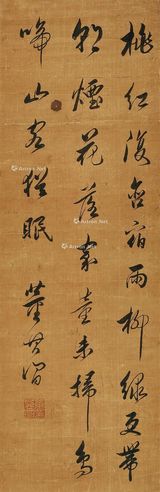 桃红復含宿雨柳绿更带
朝煙花落家童未掃鸟
啼山客猶眠
董其昌